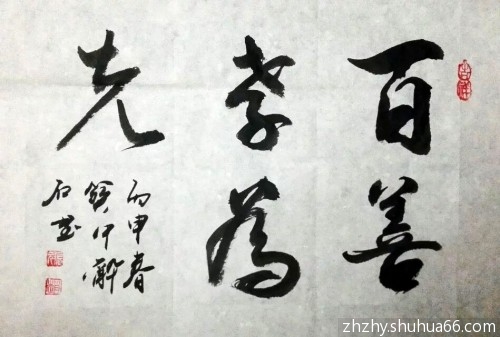 百善
孝為
先
丙申春
吉祥
zhzhy.shuhua66.com